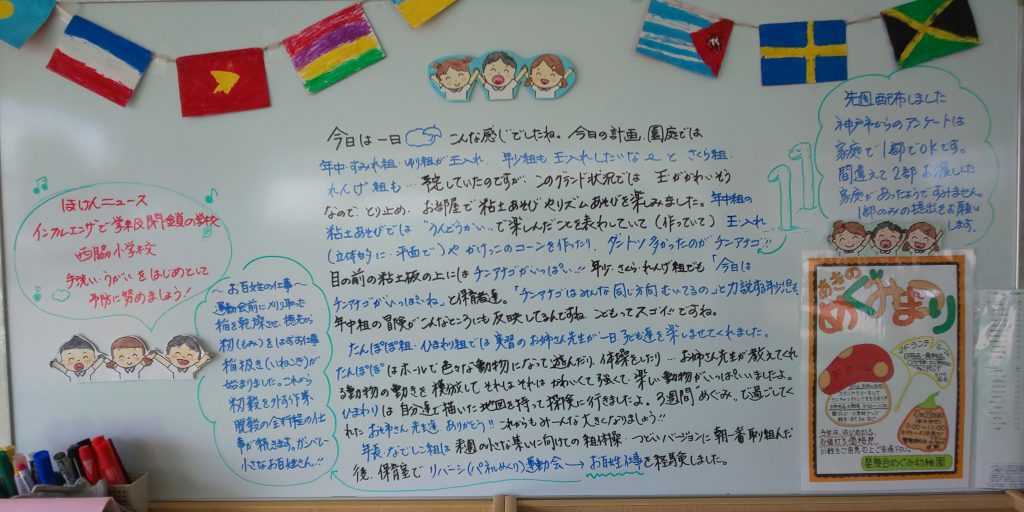 今日は一日 こんな感じでしたね。今日の計画、園庭では
年中・すみれ組・ゆり組が玉入れ、年少組も玉入れしたいな〜と さくら組・
れんげ組も…予定していたのですが、このグランド状況では 玉がかわいそう
なので、とり止め、お部屋で粘土あそびやリズムあそびを楽しみました。年中組の
粘土あそびでは“うんどうかい”で楽しんだことを表わしていて(作っていて)玉入れ
(立体的に・平面で)や かけっこのコーンを作ったり、ダントツ多かったのがチンアナゴ!!
目の前の粘土板の上には チンアナゴがいっぱい!! 年少・さくら・れんげ組でも「今日は
チンアナゴがいっぱいね」と保育者達。「チンアナゴはみんな同じ方向むいてるの」と力説する年少児も
年中組の冒険がこんなところにも反映してるんですね。こどもってスゴイですね。
たんぽぽ組・ひまわり組では実習のお姉さん先生が一日子ども達を楽しませてくれました。
たんぽぽはホールで色々な動物になって遊んだり、体操をしたり…お姉さん先生が教えてくれ
る動物の動きを模倣して、それはそれは かわいくて強くて楽しい動物がいっぱいいましたよ。
ひまわりは自分達で描いた地図を持って探険に行きましたよ。3週間めぐみ で過ごしてく
れたお姉さん先生達、ありがとう!! これからもみーんな大きくなりましょう!!
年長・なでしこ組は来週の小さな集いに向けての組体操・つどいバージョンに朝一番取り組んだ
後、保育室でリバーシ(パネルめくり)運動会→お百姓仕事を経験しました。
ほけんニュース
インフルエンザで学級閉鎖の学校
西脇小学校
手洗い・うがいをはじめとして
予防に努めましょう!
〜お百姓の仕事〜
運動会前に刈り取った
稲を乾燥させ、穂先から
籾(もみ)をはずす仕事
稲扱き(いねこき)が
始まりました。これから
籾殻を外す作業
脱穀の全行程の仕
事が続きます。ガンバレ〜
小さなお百姓さん!!
先週配布しました
神戸市からのアンケートは
家庭で1部でOKです。
間違えて2部お渡しした
家庭があったようですみません。
1部のみの提出をお願い
します。
あきの
めぐみまつり
星陵台めぐみ幼稚園